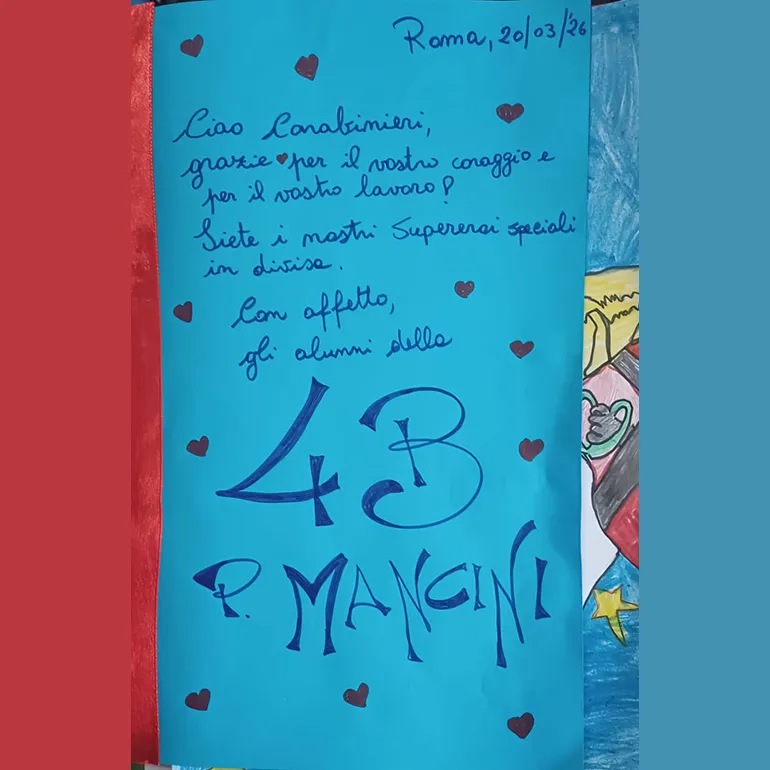 Roma, 20/03/'26
Ciao Carabinieri,
grazie per il vostro coraggio e
per il vostro lavoro!
Siete i nostri Supereroi speciali
in divisa.
Con affetto,
gli alunni della
4B
P. MANCINI